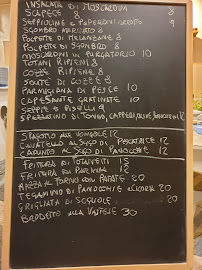 INSALATA DI MOSCARDINI
SCAPECE 8
SEPPIOLINE E PEPERONI ARROSTO 9
SGOMBRO MARINATO 8
POLPETTE DI MELANZANE 8
POLPETTE DI SGOMBRO 8
MOSCARDINI IN PURGATORIO 10
TOTANI RIPIENI 8
COZZE RIPIENE 8
SOUTÈ DI COZZE 8
PARMIGIANA DI PESCE 10
CAPESANTE GRATINATE 10
SEPPIE E PISELLI 9
SPEZZATINO DI TONNO, CAPPERI, OLIVE
SPAGHETTO ALLE VONGOLE 12
CAVATELLO AL SUGO DI PESCATRICE 12
AL SUGO DI PANOCCHIE 12
FRITTURA DI TOTANETTI 15
FRITTURA DI PARANZA 12
AL FORNO CON PATATE 20
TEGAMINO DI PANOCCHIE E SCAMPI 20
GRIGLIATA DI SOGLIOLE 20
BRODETTO ALLA VASTESE 30